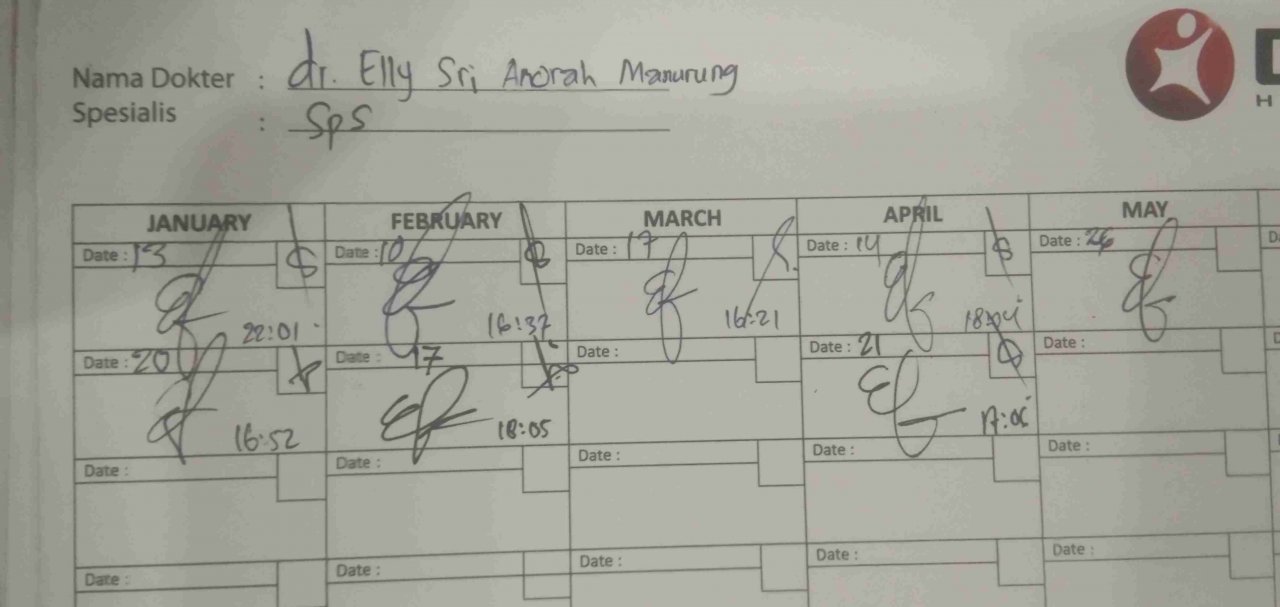 Nama Dokter : dr. Elly Sri Anorah Manurung
Spesialis : SpS
JANUARY FEBRUARY MARCH APRIL MAY
Date : 13 Date : 10 Date : 17 Date : 14 Date : 26
22:01 16:37 16:21 18:04
Date : 20 Date : 17 Date : Date : 21 Date :
16:52 18:05 17:06
Date : Date : Date : Date : Date :
Date : Date : Date : Date : Date :